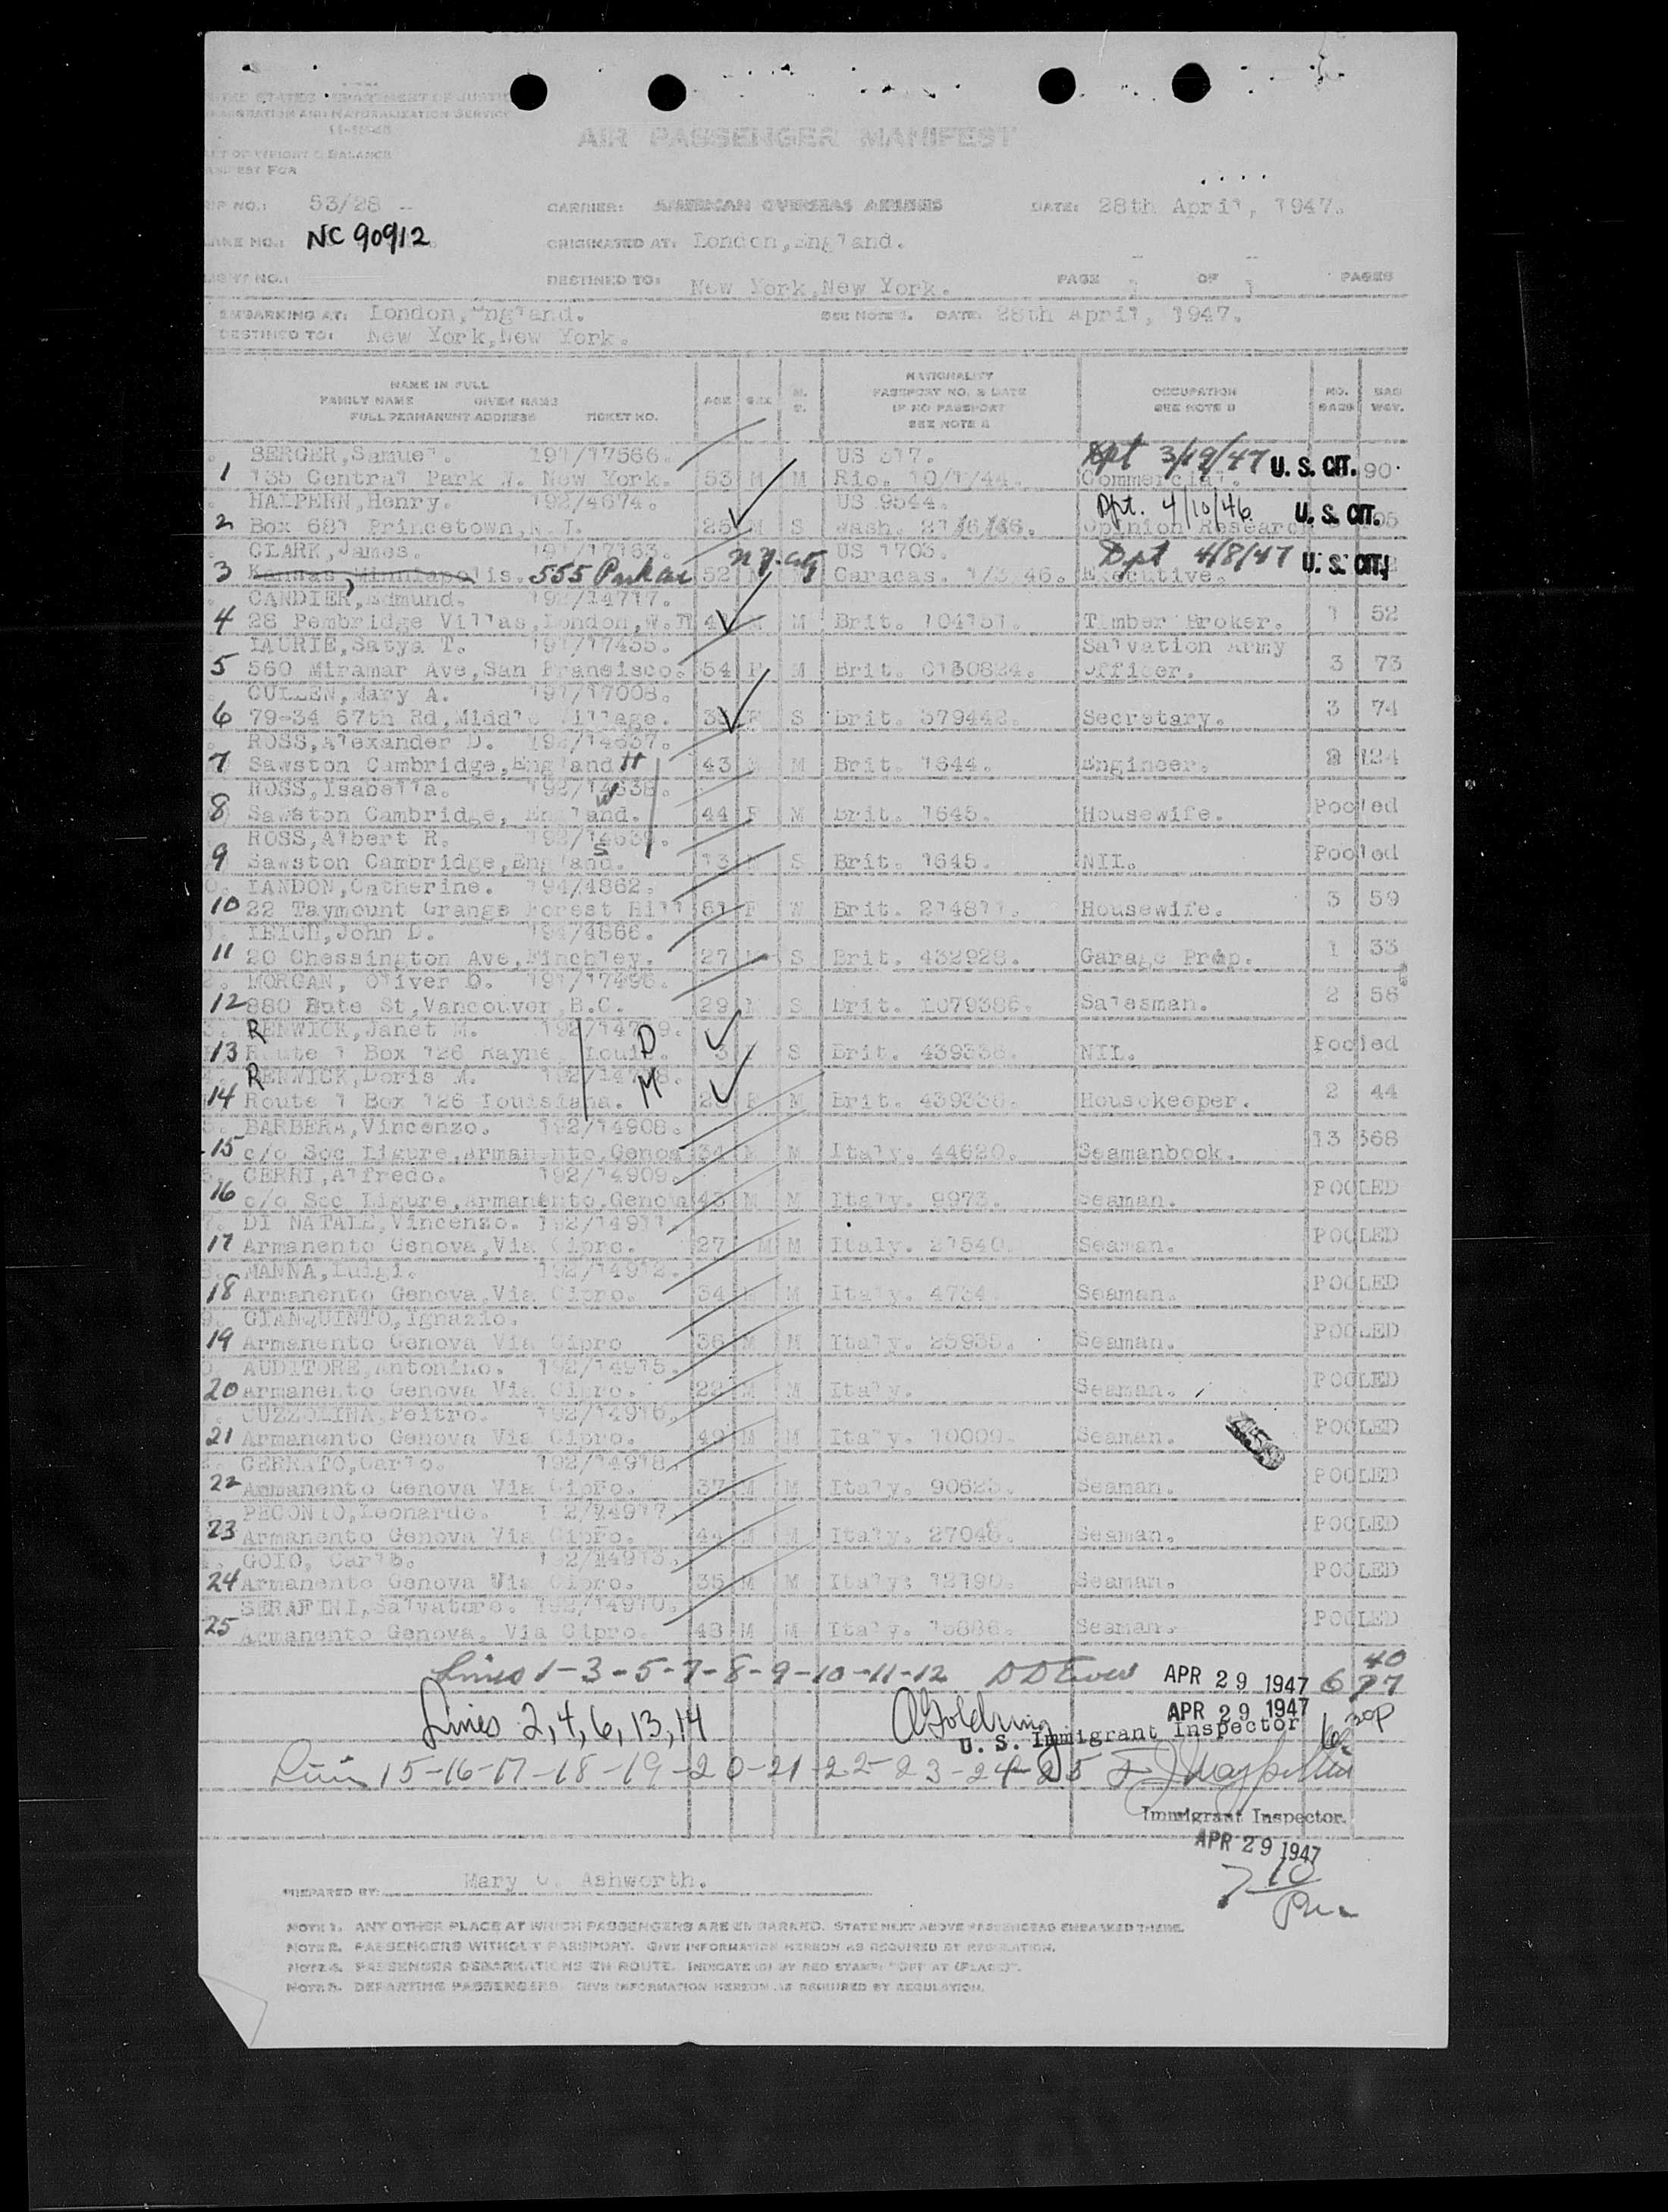 AIR PASSENGER MANIFEST
MANIFEST FOR
53/28 CARRIER: AMERICAN OVERSEAS AIRLINES DATE: 28th April, 1947.
NC 90912 ORIGINATED AT: London, England.
DESTINED TO: New York, New York. PAGE 1 OF 1 PAGES
EMBARKING AT: London, England. SEE NOTE 1. DATE: 28th April, 1947.
DESTINED TO: New York, New York.
NAME IN FULL
FAMILY NAME GIVEN NAME
FULL PERMANENT ADDRESS TICKET NO.
AGE SEX M. S.
NATIONALITY
PASSPORT NO. & DATE
IF NO PASSPORT
SEE NOTE 2
OCCUPATION
SEE NOTE 3
NO. BAGS BAG WGT.
BERGER, Samuel. 191/17566. US 317. Dpt 3/19/47 U. S. CIT.
1 135 Central Park W. New York. 53 M M Rio. 10/1/44. Commercial. 90.
HALPERN, Henry. 192/4674. US 9544. Dpt. 4/10/46 U. S. CIT.
2 Box 681 Princetown, N.J. 25 M S Wash. Opinion Research
CLARK, James. 191/17163. N.Y. City US 1703. Dpt 4/8/47 U. S. CIT.
3 Kansas, Minniapolis. 555 Park av 52 Caracas. Executive.
CANDIER, Edmund. 192/14717.
4 28 Pembridge Villas, London, W.11 M Brit. 104151. Timber Broker. 1 52
LAURIE, Satya T. 191/17455. Salvation Army
5 560 Miramar Ave, San Francisco. 54 F M Brit. C130824. Officer. 3 73
CULLEN, Mary A. 191/17008.
6 79-34 67th Rd, Middle Village. F S Brit. 379442. Secretary. 3 74
ROSS, Alexander D. 192/14637.
7 Sawston Cambridge, England H 43 M M Brit. 1644. Engineer. 124
ROSS, Isabella. 192/14638. W
8 Sawston Cambridge, England. 44 F M Brit. 1645. Housewife. Pooled
ROSS, Albert R. 192/14639. S
9 Sawston Cambridge, England. 13 M S Brit. 1645. NIL. Pooled
LANDON, Catherine. 194/4862.
10 22 Taymount Grange Forest Hill 61 F Brit. 214811. Housewife. 3 59
LEIGH, John D. 194/4866.
11 20 Chessington Ave, Finchley. 27 M S Brit. 432928. Garage Prop. 1 33
MORGAN, Oliver O. 191/17496.
12 880 Bute St, Vancouver, B.C. 29 M S Brit. 1079386. Salesman. 2 56
RENWICK, Janet M. D
13 Route 1 Box 126 Rayne, Louis. 3 F S Brit. 439338. NIL. Pooled
RENWICK, Doris M. M
14 Route 1 Box 126 Louisiana. F M Brit. 439338. Housekeeper. 2 44
BARBERA, Vincenzo. 192/14908.
15 c/o Soc Ligure, Armanento, Genoa 34 M M Italy. 44620. Seamanbook. 13 368
CERRI, Alfredo. 192/14909.
16 c/o Soc Ligure, Armanento, Genova 43 M M Italy. 9973. Seaman. POOLED
DI NATALE, Vincenzo. 192/14911.
17 Armanento Genova, Via Cipro. 27 M M Italy. 27540. Seaman. POOLED
MANNA, Luigi. 192/14912.
18 Armanento Genova, Via Cipro. 34 M Italy. 4734. Seaman. POOLED
GIANQUINTO, Ignazio.
19 Armanento Genova Via Cipro 36 M M Italy. 25935. Seaman. POOLED
AUDITORE, Antonino. 192/14915.
20 Armanento Genova Via Cipro. 22 M M Italy. Seaman. POOLED
CUZZOLINA, Peitro. 192/14916.
21 Armanento Genova Via Cipro. 49 M M Italy. 10009. Seaman. POOLED
CERRATO, Carlo. 192/14918.
22 Armanento Genova Via Cipro. 37 M M Italy. Seaman. POOLED
PECONIO, Leonardo. 192/14917
23 Armanento Genova Via Cipro. 44 M M Italy. Seaman. POOLED
GOIO, Carlo. 192/14913.
24 Armanento Genova Via Cipro. 35 M M Italy: 12190. Seaman. POOLED
SERAFINI, Salvatore. 192/14910.
25 Armanento Genova. Via Cipro. 43 M M Italy. 15886. Seaman. POOLED
Lines 1-3-5-7-8-9-10-11-12 APR 29 1947
Lines 2, 4, 6, 13, 14 APR 29 1947
U. S. Immigrant Inspector
Lines 15-16-17-18-19-20-21-22-23-24-25
Immigrant Inspector.
APR 29 1947
PREPARED BY: Mary C. Ashworth.
NOTE 1. ANY OTHER PLACE AT WHICH PASSENGERS ARE EMBARKED. STATE NEXT ABOVE PASSENGERS EMBARKED THERE.
NOTE 2. PASSENGERS WITHOUT PASSPORT. GIVE INFORMATION HEREON AS REQUIRED BY REGULATION.
NOTE 4. PASSENGER DEBARKATIONS EN ROUTE. INDICATE (3) BY RED STAMP: "OFF AT (PLACE)".
NOTE 5. DEPARTING PASSENGERS. GIVE INFORMATION HEREON AS REQUIRED BY REGULATION.